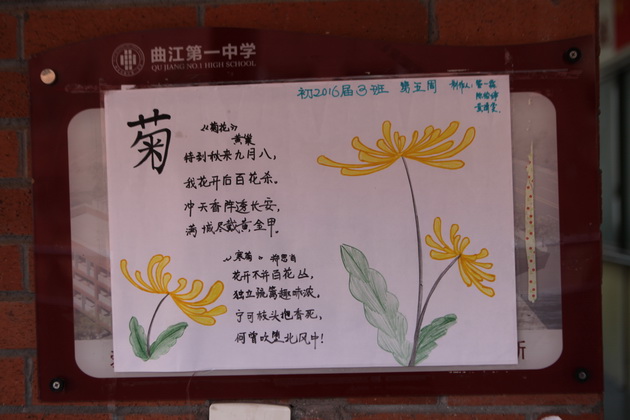 曲江第一中学
QU JIANG NO.1 HIGH SCHOOL
初2016届3班 第五周
制作人:
菊
《菊花》
黄巢
待到秋来九月八,
我花开后百花杀.
冲天香阵透长安,
满城尽戴黄金甲.
《寒菊》 郑思肖
花开不并百花丛,
独立疏篱趣味浓,
宁可枝头抱香死,
何曾吹堕北风中!